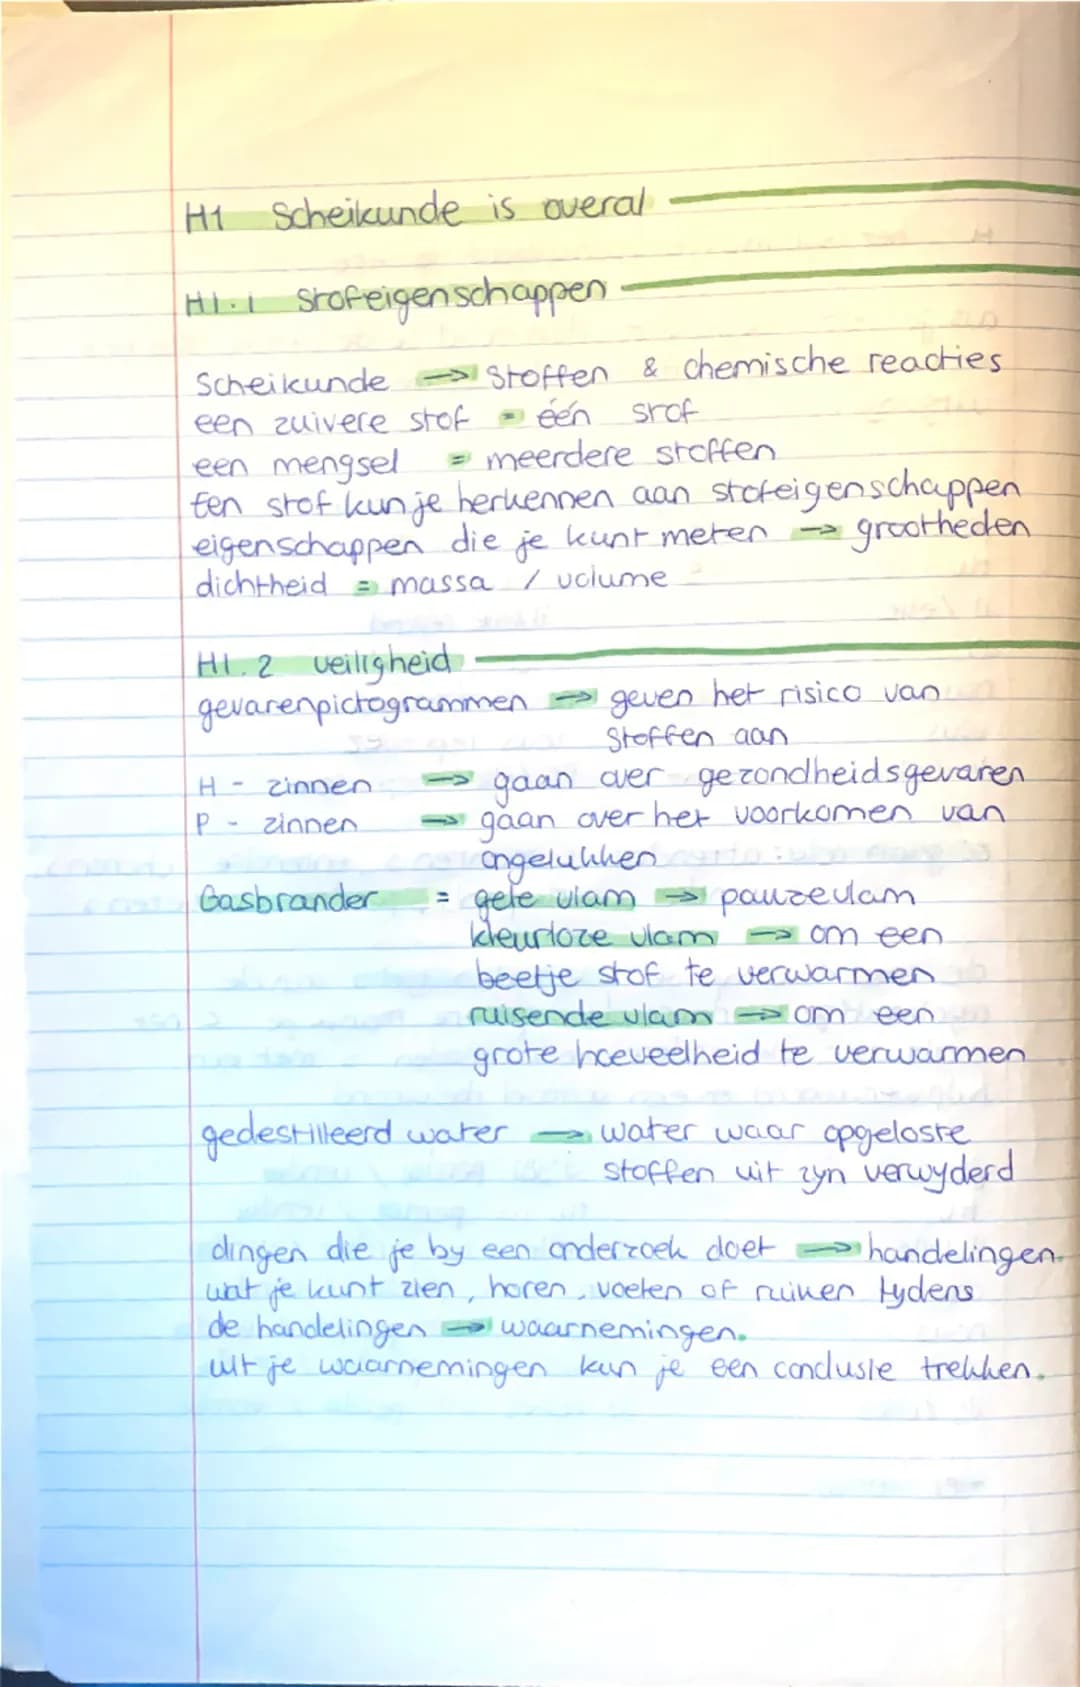 H1 Scheikunde is overal
H1.1 Stofeigenschappen
Scheikunde → Stoffen & chemische reacties
een zuivere stof = één stof
een mengsel = meerdere stoffen
Een stof kun je herkennen aan stofeigenschappen
eigenschappen die je kunt meten → grootheden
dichtheid = massa / volume
H1.2 veiligheid
gevarenpictogrammen → geven het risico van
Stoffen aan
H - zinnen → gaan over gezondheidsgevaren
P - zinnen → gaan over het voorkomen van
ongelukken
Gasbrander = gele vlam → pauzevlam
kleurloze vlam → om een
beetje stof te verwarmen
ruisende vlam → om een
grote hoeveelheid te verwarmen
gedestilleerd water → water waar opgeloste
stoffen uit zyn verwyderd
dingen die je by een onderzoek doet → handelingen.
wat je kunt zien, horen, voelen of ruiken tydens
de handelingen → waarnemingen.
uit je waarnemingen kun je een conclusie trekken.